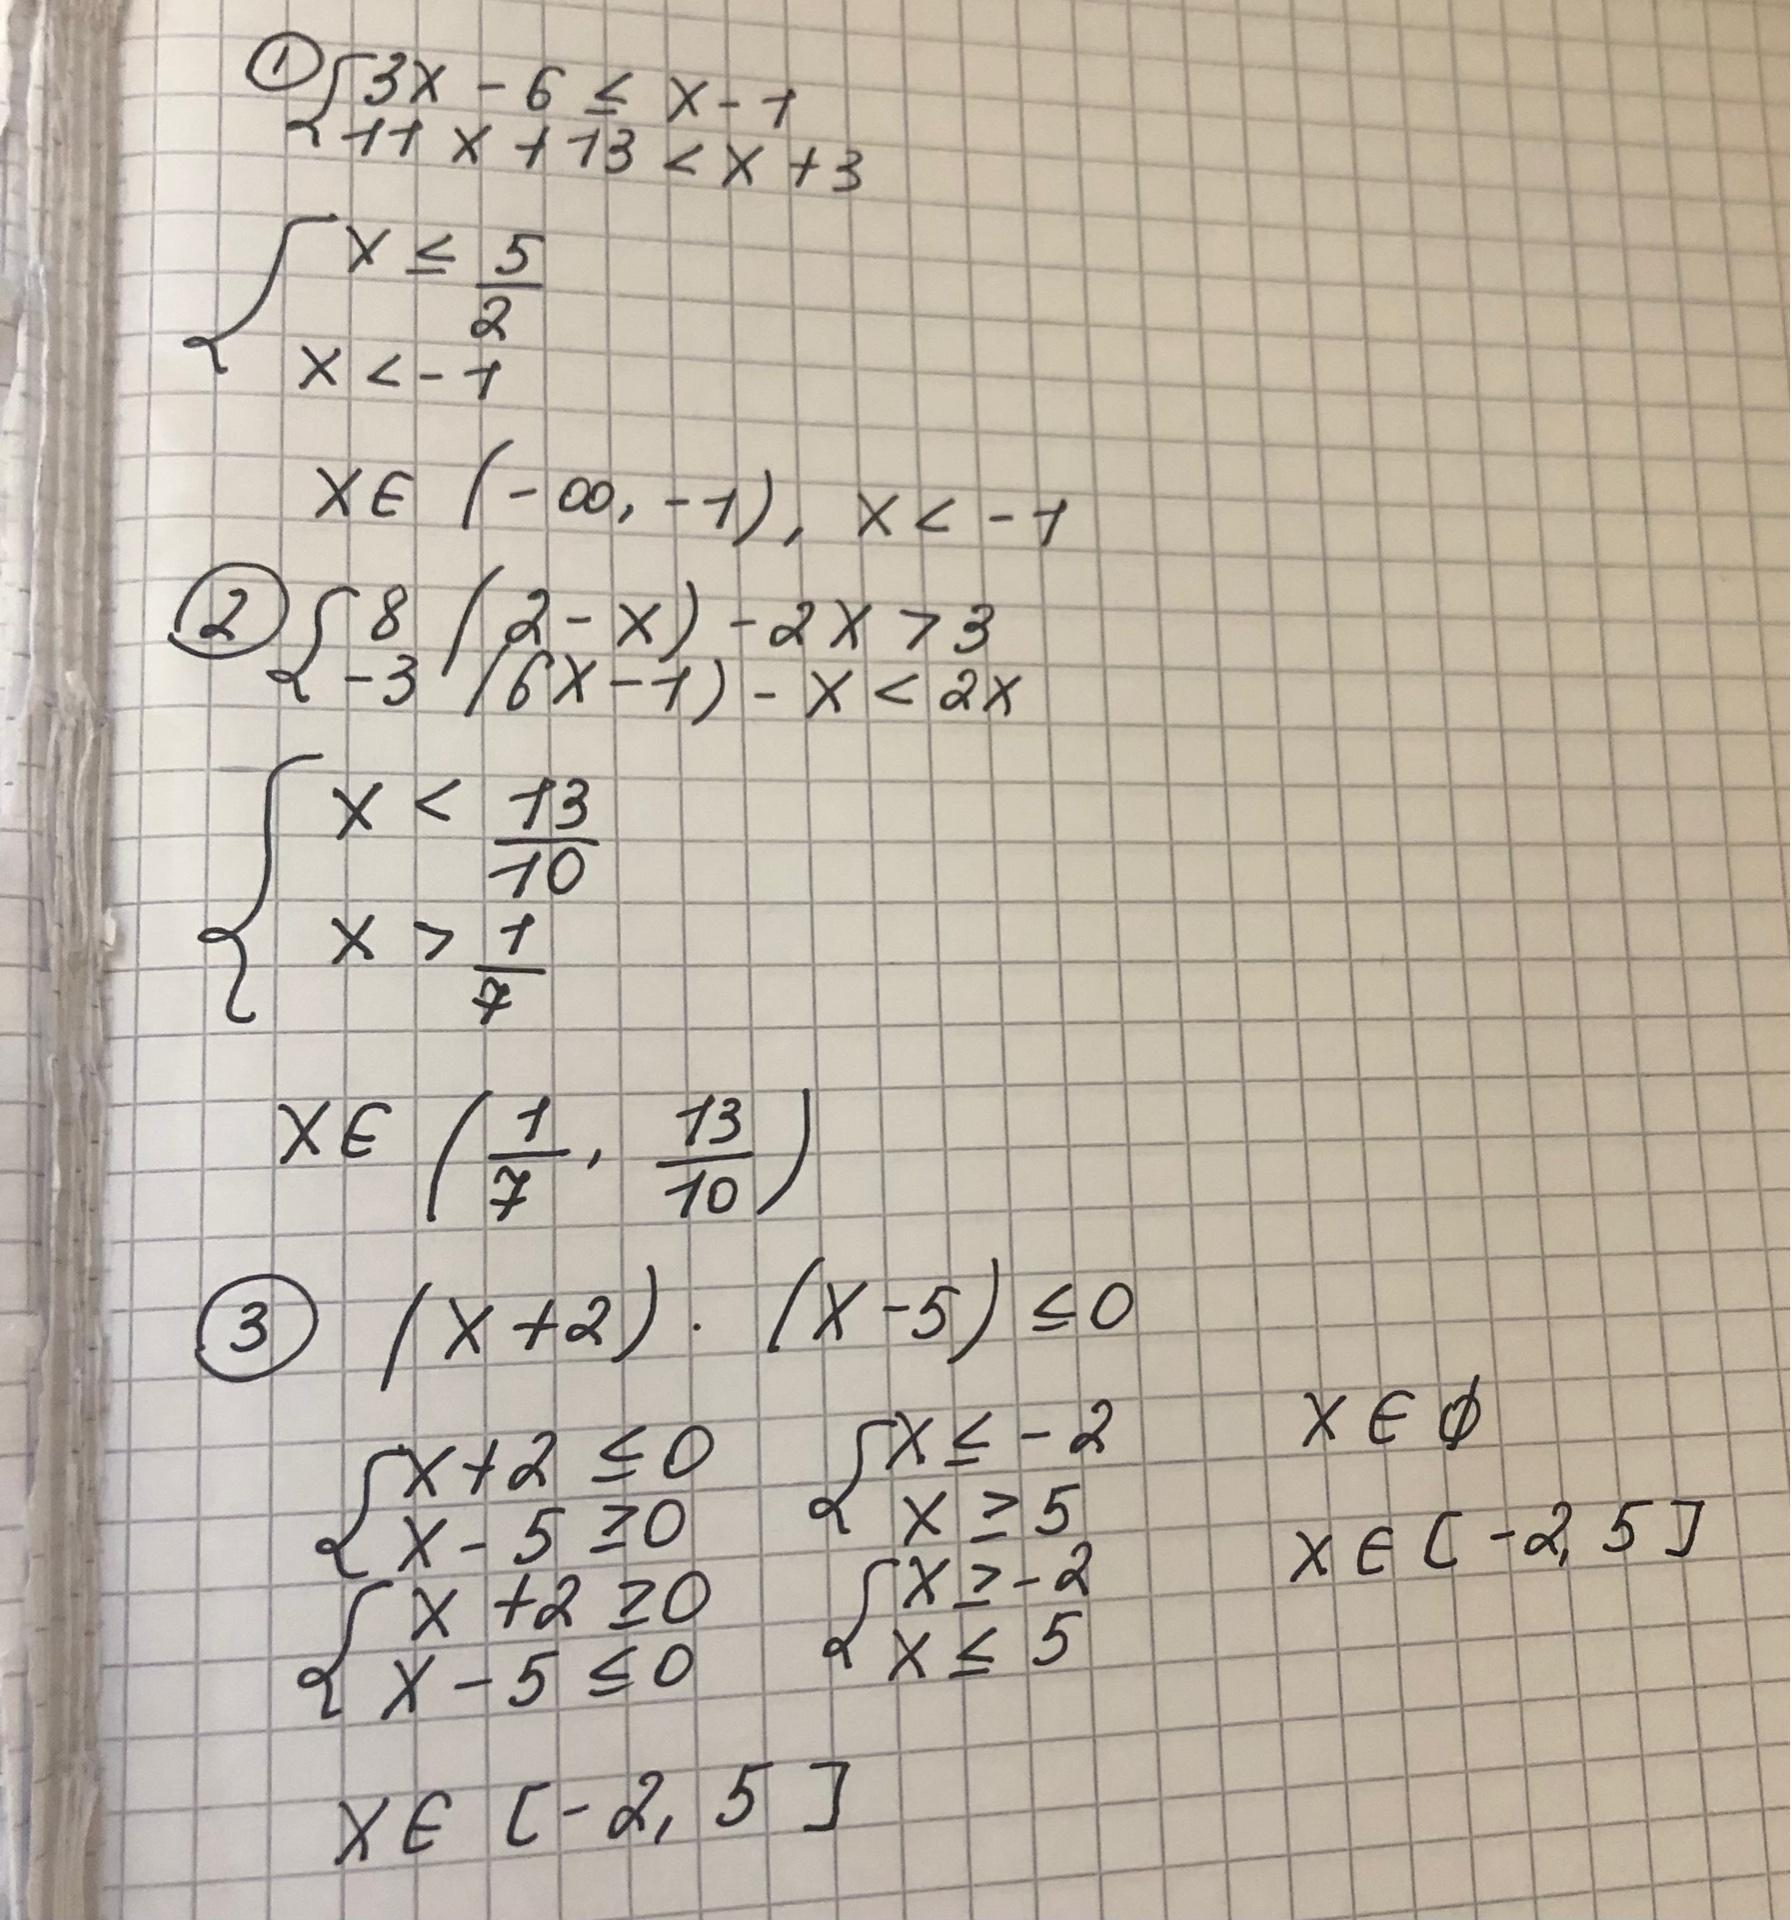 ① { 3x - 6 ≤ x - 1
11x + 13 < x + 3
{ x ≤ 5/2
x < -1
x ∈ (-∞, -1), x < -1
② { 8 (2 - x) - 2x > 3
-3 (6x - 1) - x < 2x
{ x < 13/10
x > 1/7
x ∈ (1/7, 13/10)
③ (x + 2) · (x - 5) ≤ 0
{ x + 2 ≤ 0 { x ≤ -2 x ∈ ∅
x - 5 ≥ 0 x ≥ 5
{ x + 2 ≥ 0 { x ≥ -2 x ∈ [-2, 5]
x - 5 ≤ 0 x ≤ 5
x ∈ [-2, 5]